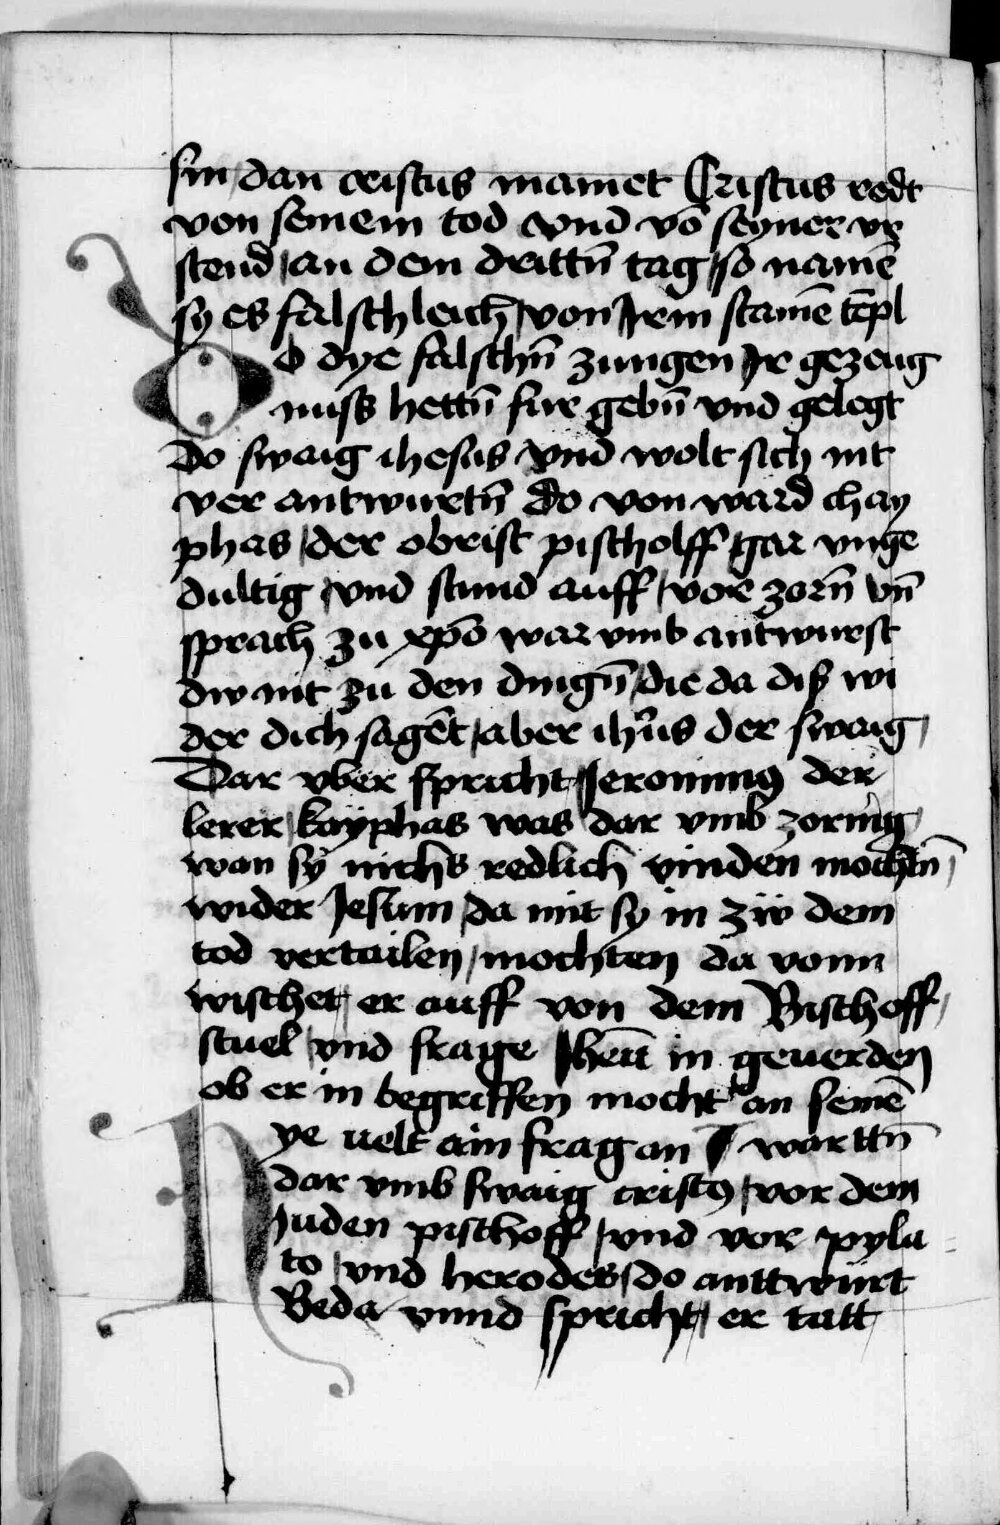 sin / dan cristus mainet Cristus redt
von seinem tod vnd vō seyner vr
stend / an dem drittn̄ tag / so namē
sy es falschleich / von Irem stainē tēpl
Do dye falschn̄ zungen Ir gezeug
nuss hettn̄ fur gebn̄ vnd gelegt
Do swaig ihesus vnd wolt sich nit
ver antwurtn̄ do von ward chay
phas / der obrist pischolff / gar vnge
dultig / vnd stund auff / vor zorn̄ vn̄
sprach zu xp̄o war vmb antwurst
dw nit zu den dingn̄ / die da diß wi
der dich sagēt / aber ih̄us der swaig /
Dar vber spricht / Ieronimus der
lerer / kayphas was dar vmb zornig /
wan sy nichs redlich vinden mochtn̄ /
wider Jesum / da mit sy in zw dem
tod vertailen / mochten da vonn
wischet / er auff von dem Bischoff /
stuel / vnd frage Ihesū in geuerden
ob er in begriffen mocht an seinē
Hye uelt ain frag an wartn̄
dar vmb swaig cristus / vor dem
Juden pischoff / vnd vor pyla
to / vnd herodes / do anttwurt
Beda vnnd spricht / er tatt